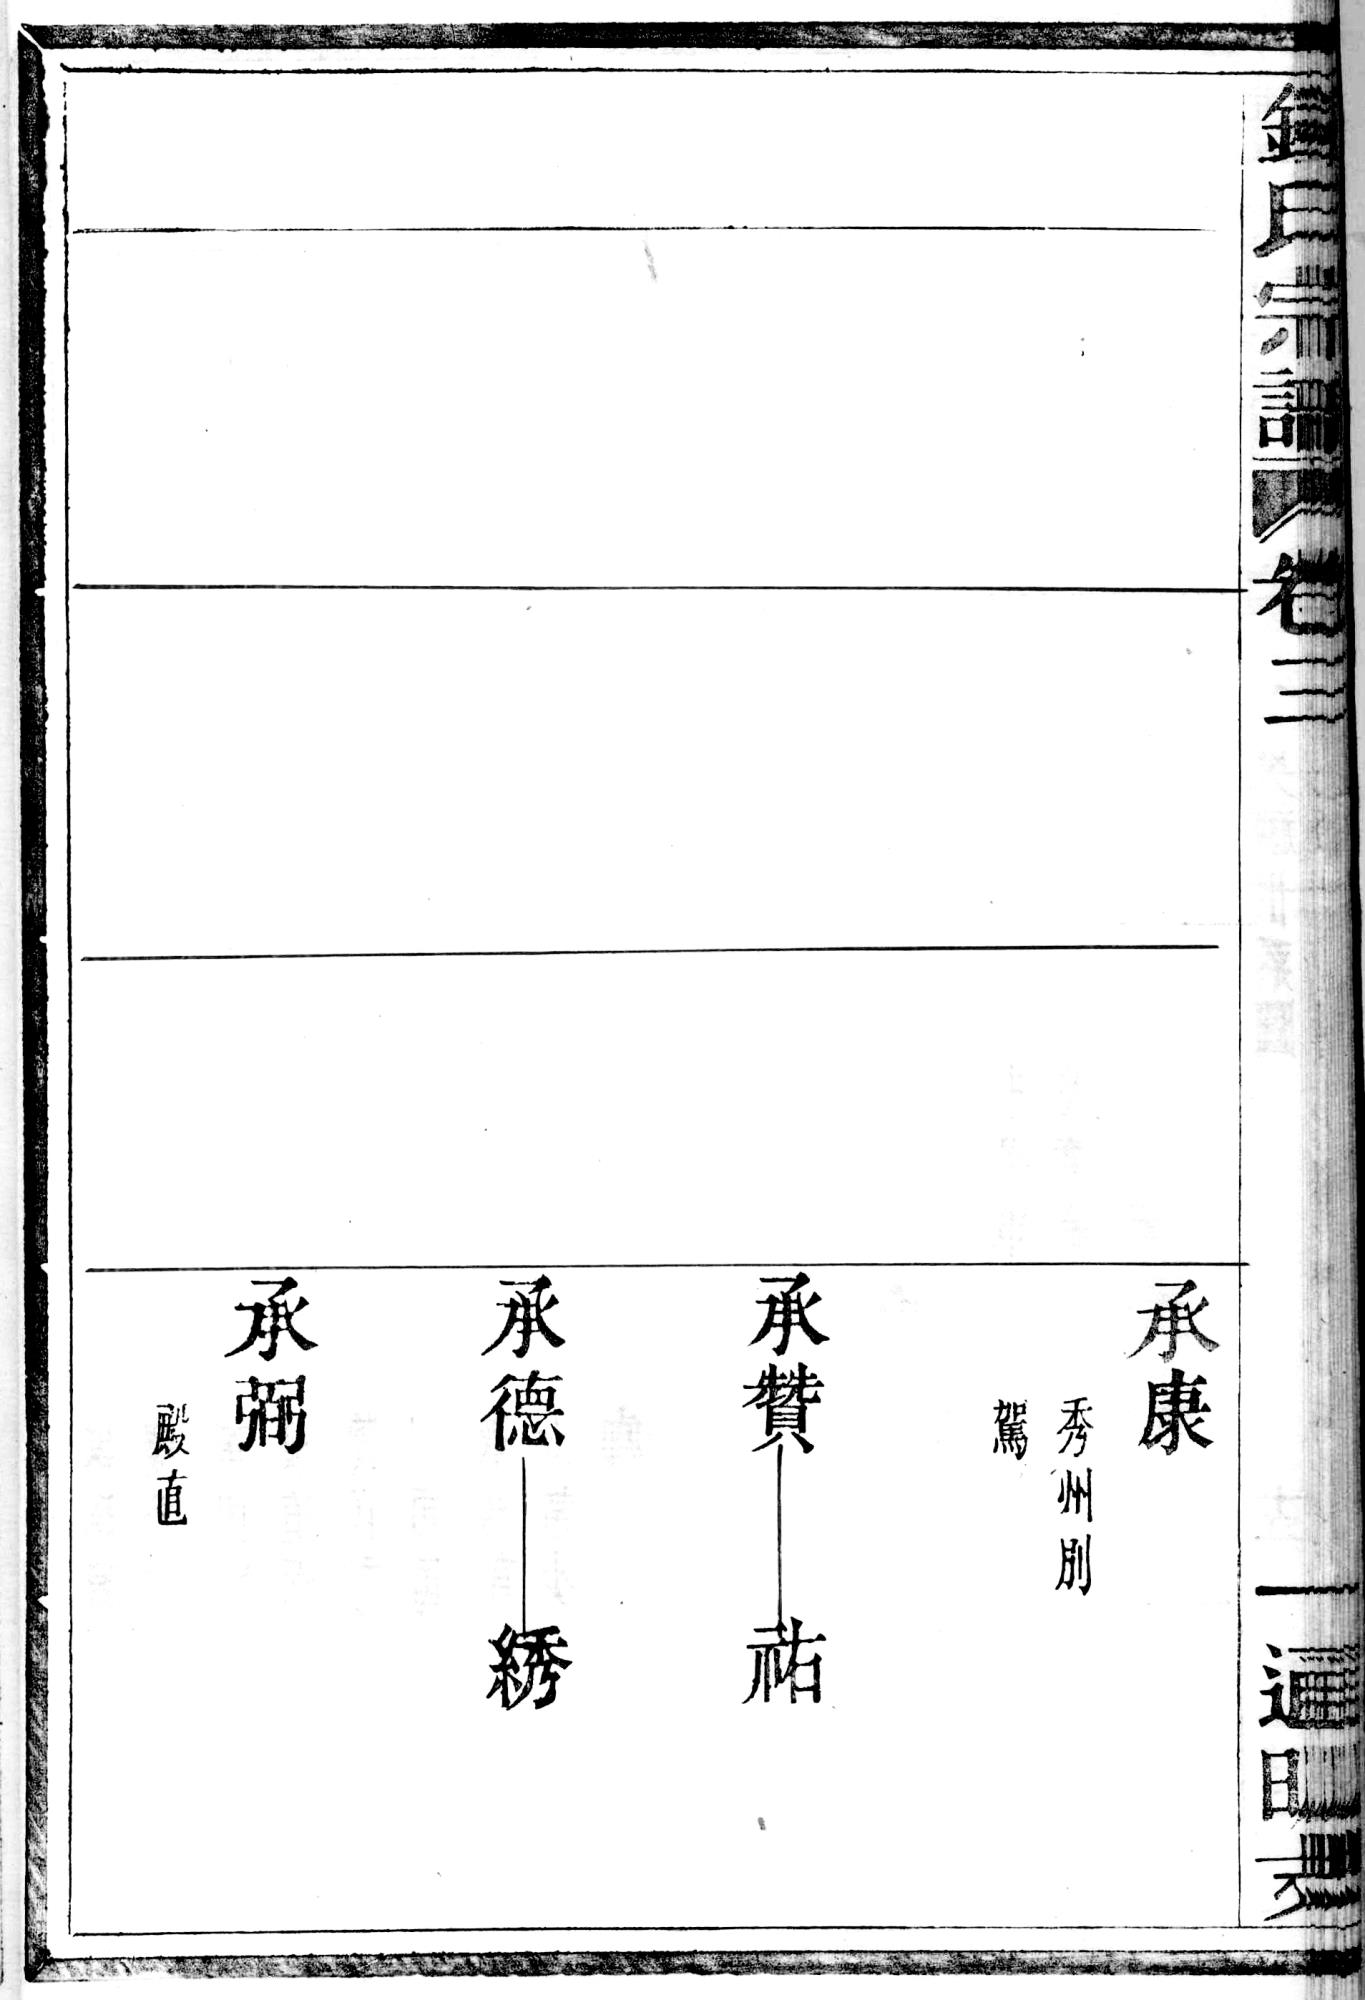 氏宗譜
卷三
承康
秀州別
駕
承贊
祐
承德
綉
承弻
殿直